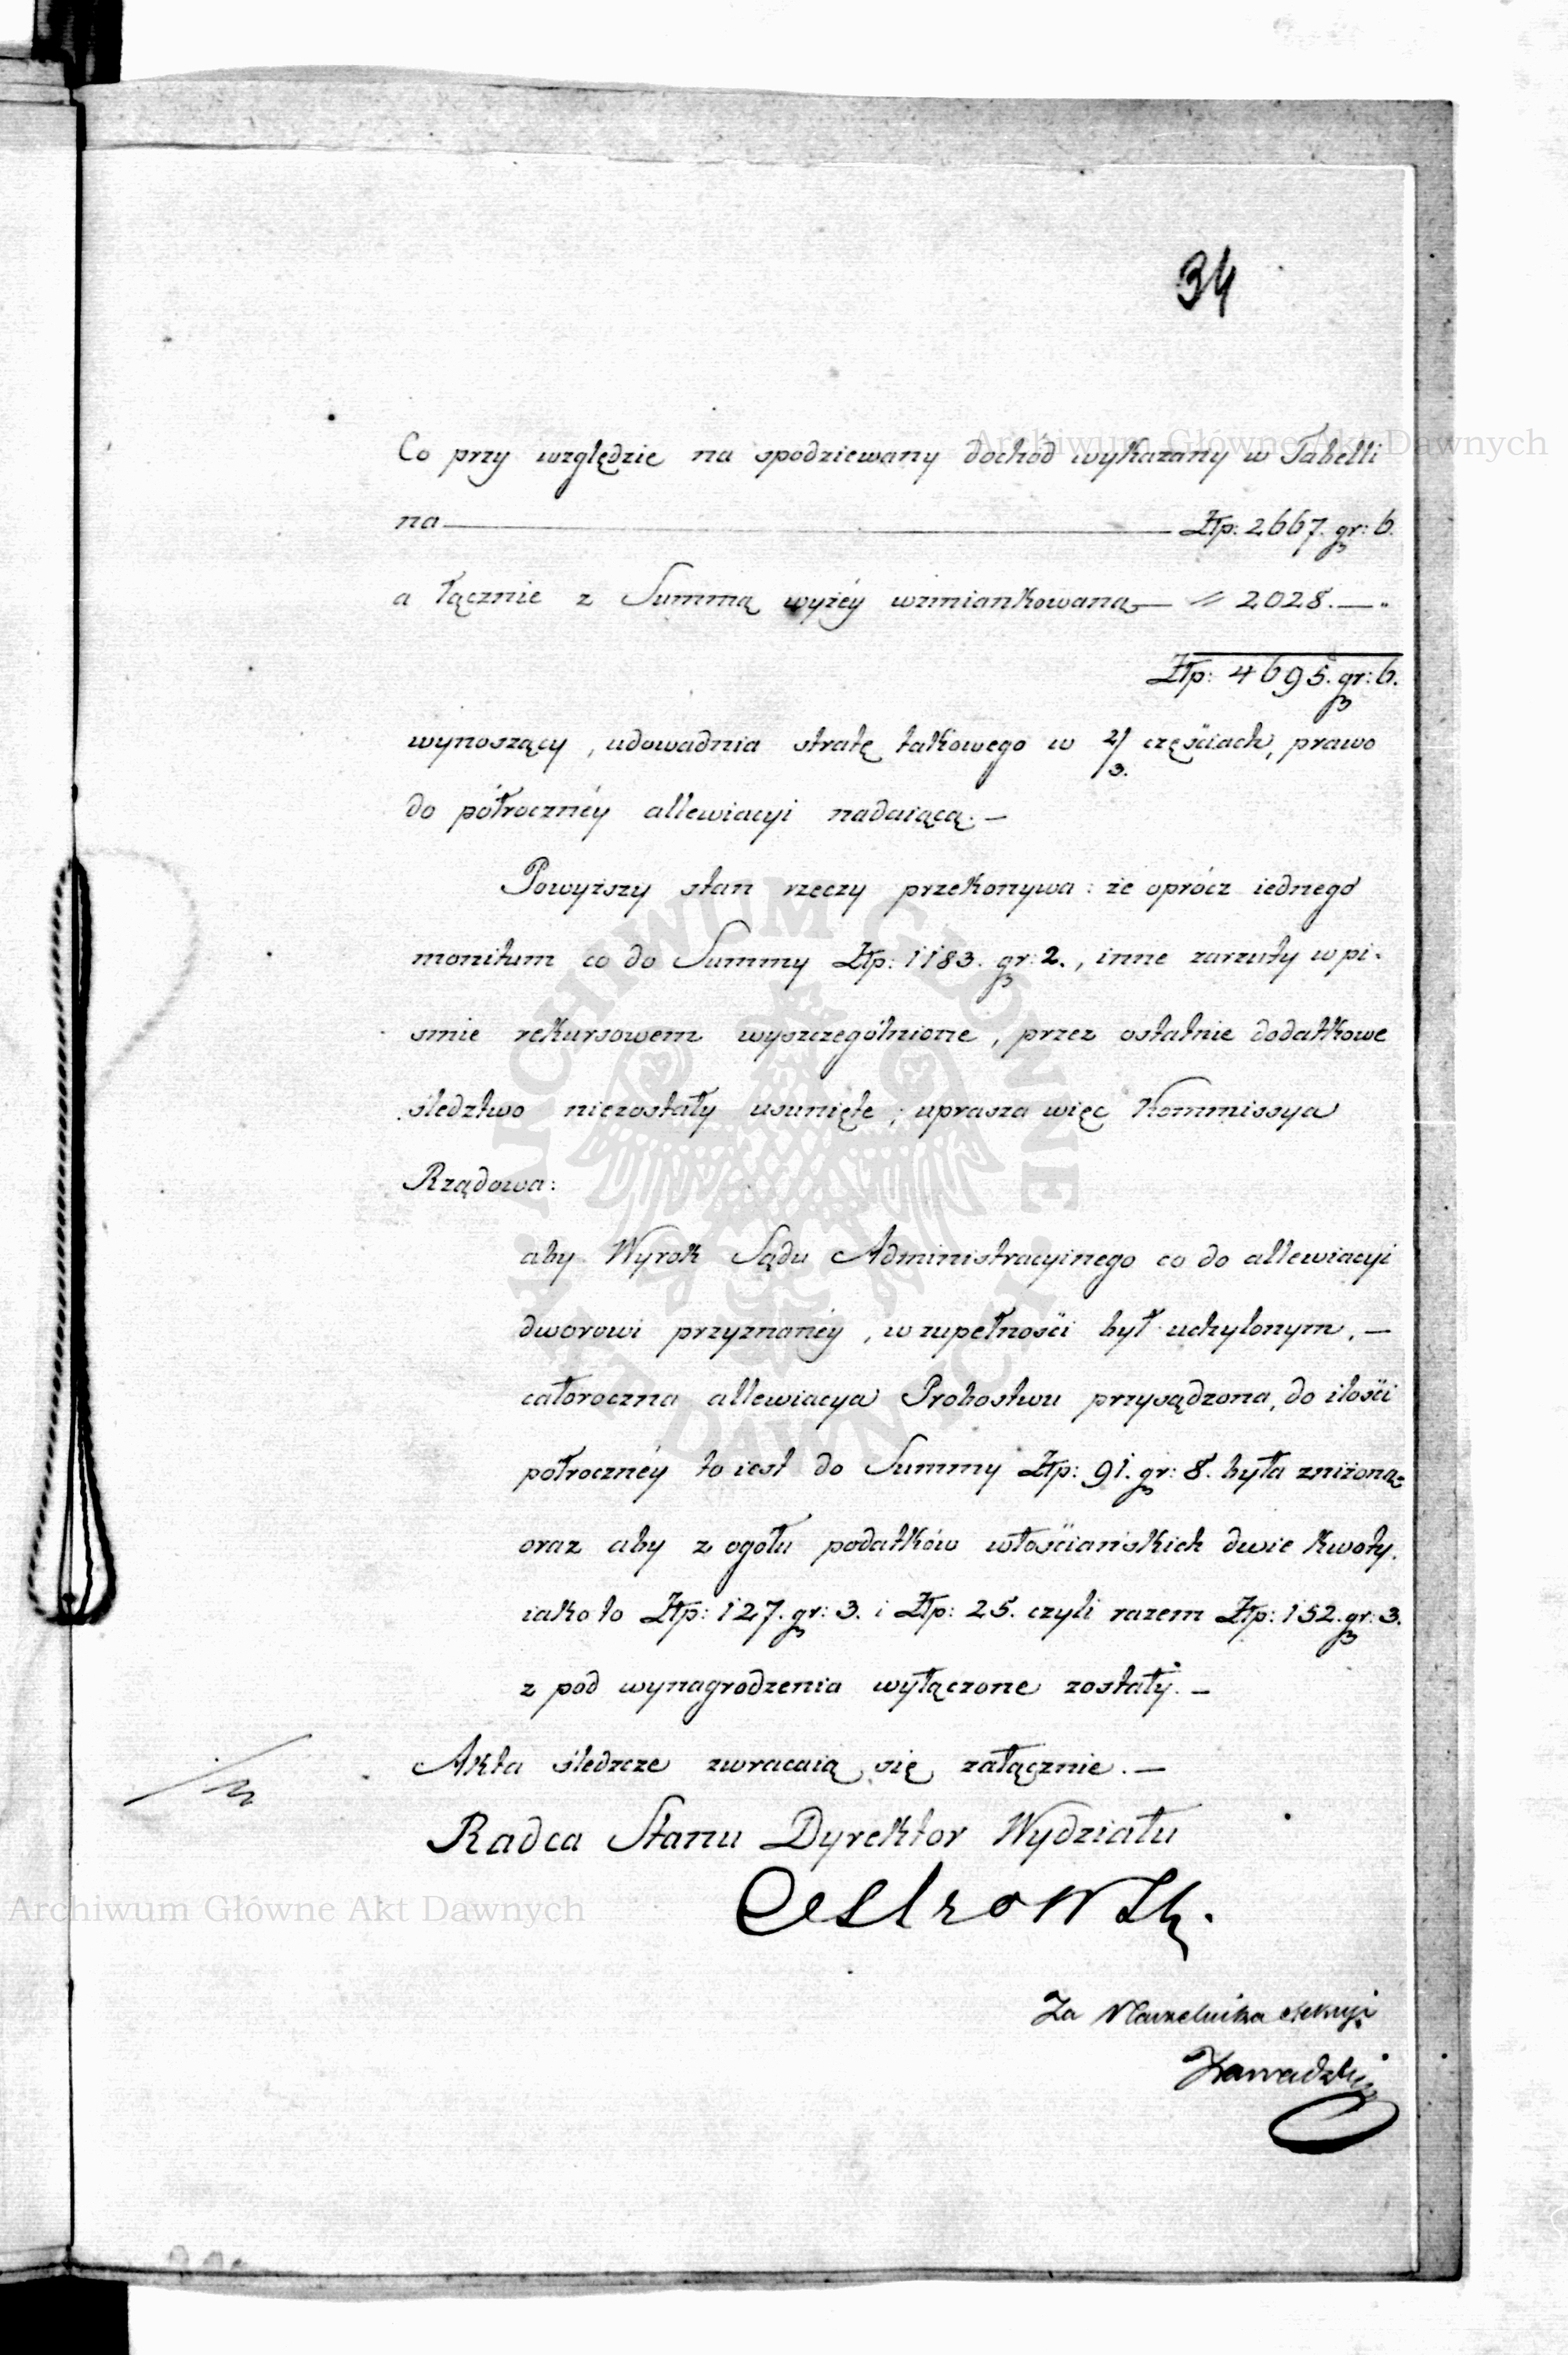 34
Co przy względzie na spodziewany dochód wykazany w Tabelli
na — Złp: 2667. gr: 6.
a łącznie z Summą wyżéy wzmiankowaną — // 2028. — "
Złp: 4695. gr: 6.
wynoszący, udowadnia stratę takowego w 2/3. częściach, prawo
do półrocznéy allewiacyi nadaiącą. —
Powyższy stan rzeczy przekonywa: że oprócz iednego
monitum co do Summy Złp: 1183. gr: 2., inne zarzuty w pi-
smie rekursowem wyszczególnione, przez ostatnie dodatkowe
śledztwo niezostały usunięte; uprasza więc Kommissya
Rządowa:
aby Wyrok Sądu Administracyinego co do allewiacyi
dworowi przyznanéy, w zupełności był uchylonym. —
całoroczna allewiacya Probostwu przysądzona, do ilości
połrocznéy to iest do Summy Złp: 91. gr: 8. była zniżoną
oraz aby z ogołu podatków włościańskich dwie kwoty.
iako to Złp: 127. gr: 3. i Złp: 25. czyli razem Złp: 152. gr: 3.
z pod wynagrodzenia wyłączone zostały. —
Akta śledzcze zwracaią się załącznie. —
Radca Stanu Dyrektor Wydziału
Za Naczelnika
Zawadzki
Archiwum Główne Akt Dawnych
Archiwum Główne Akt Dawnych
ARCHIWUM GŁÓWNE
AKT DAWNYCH